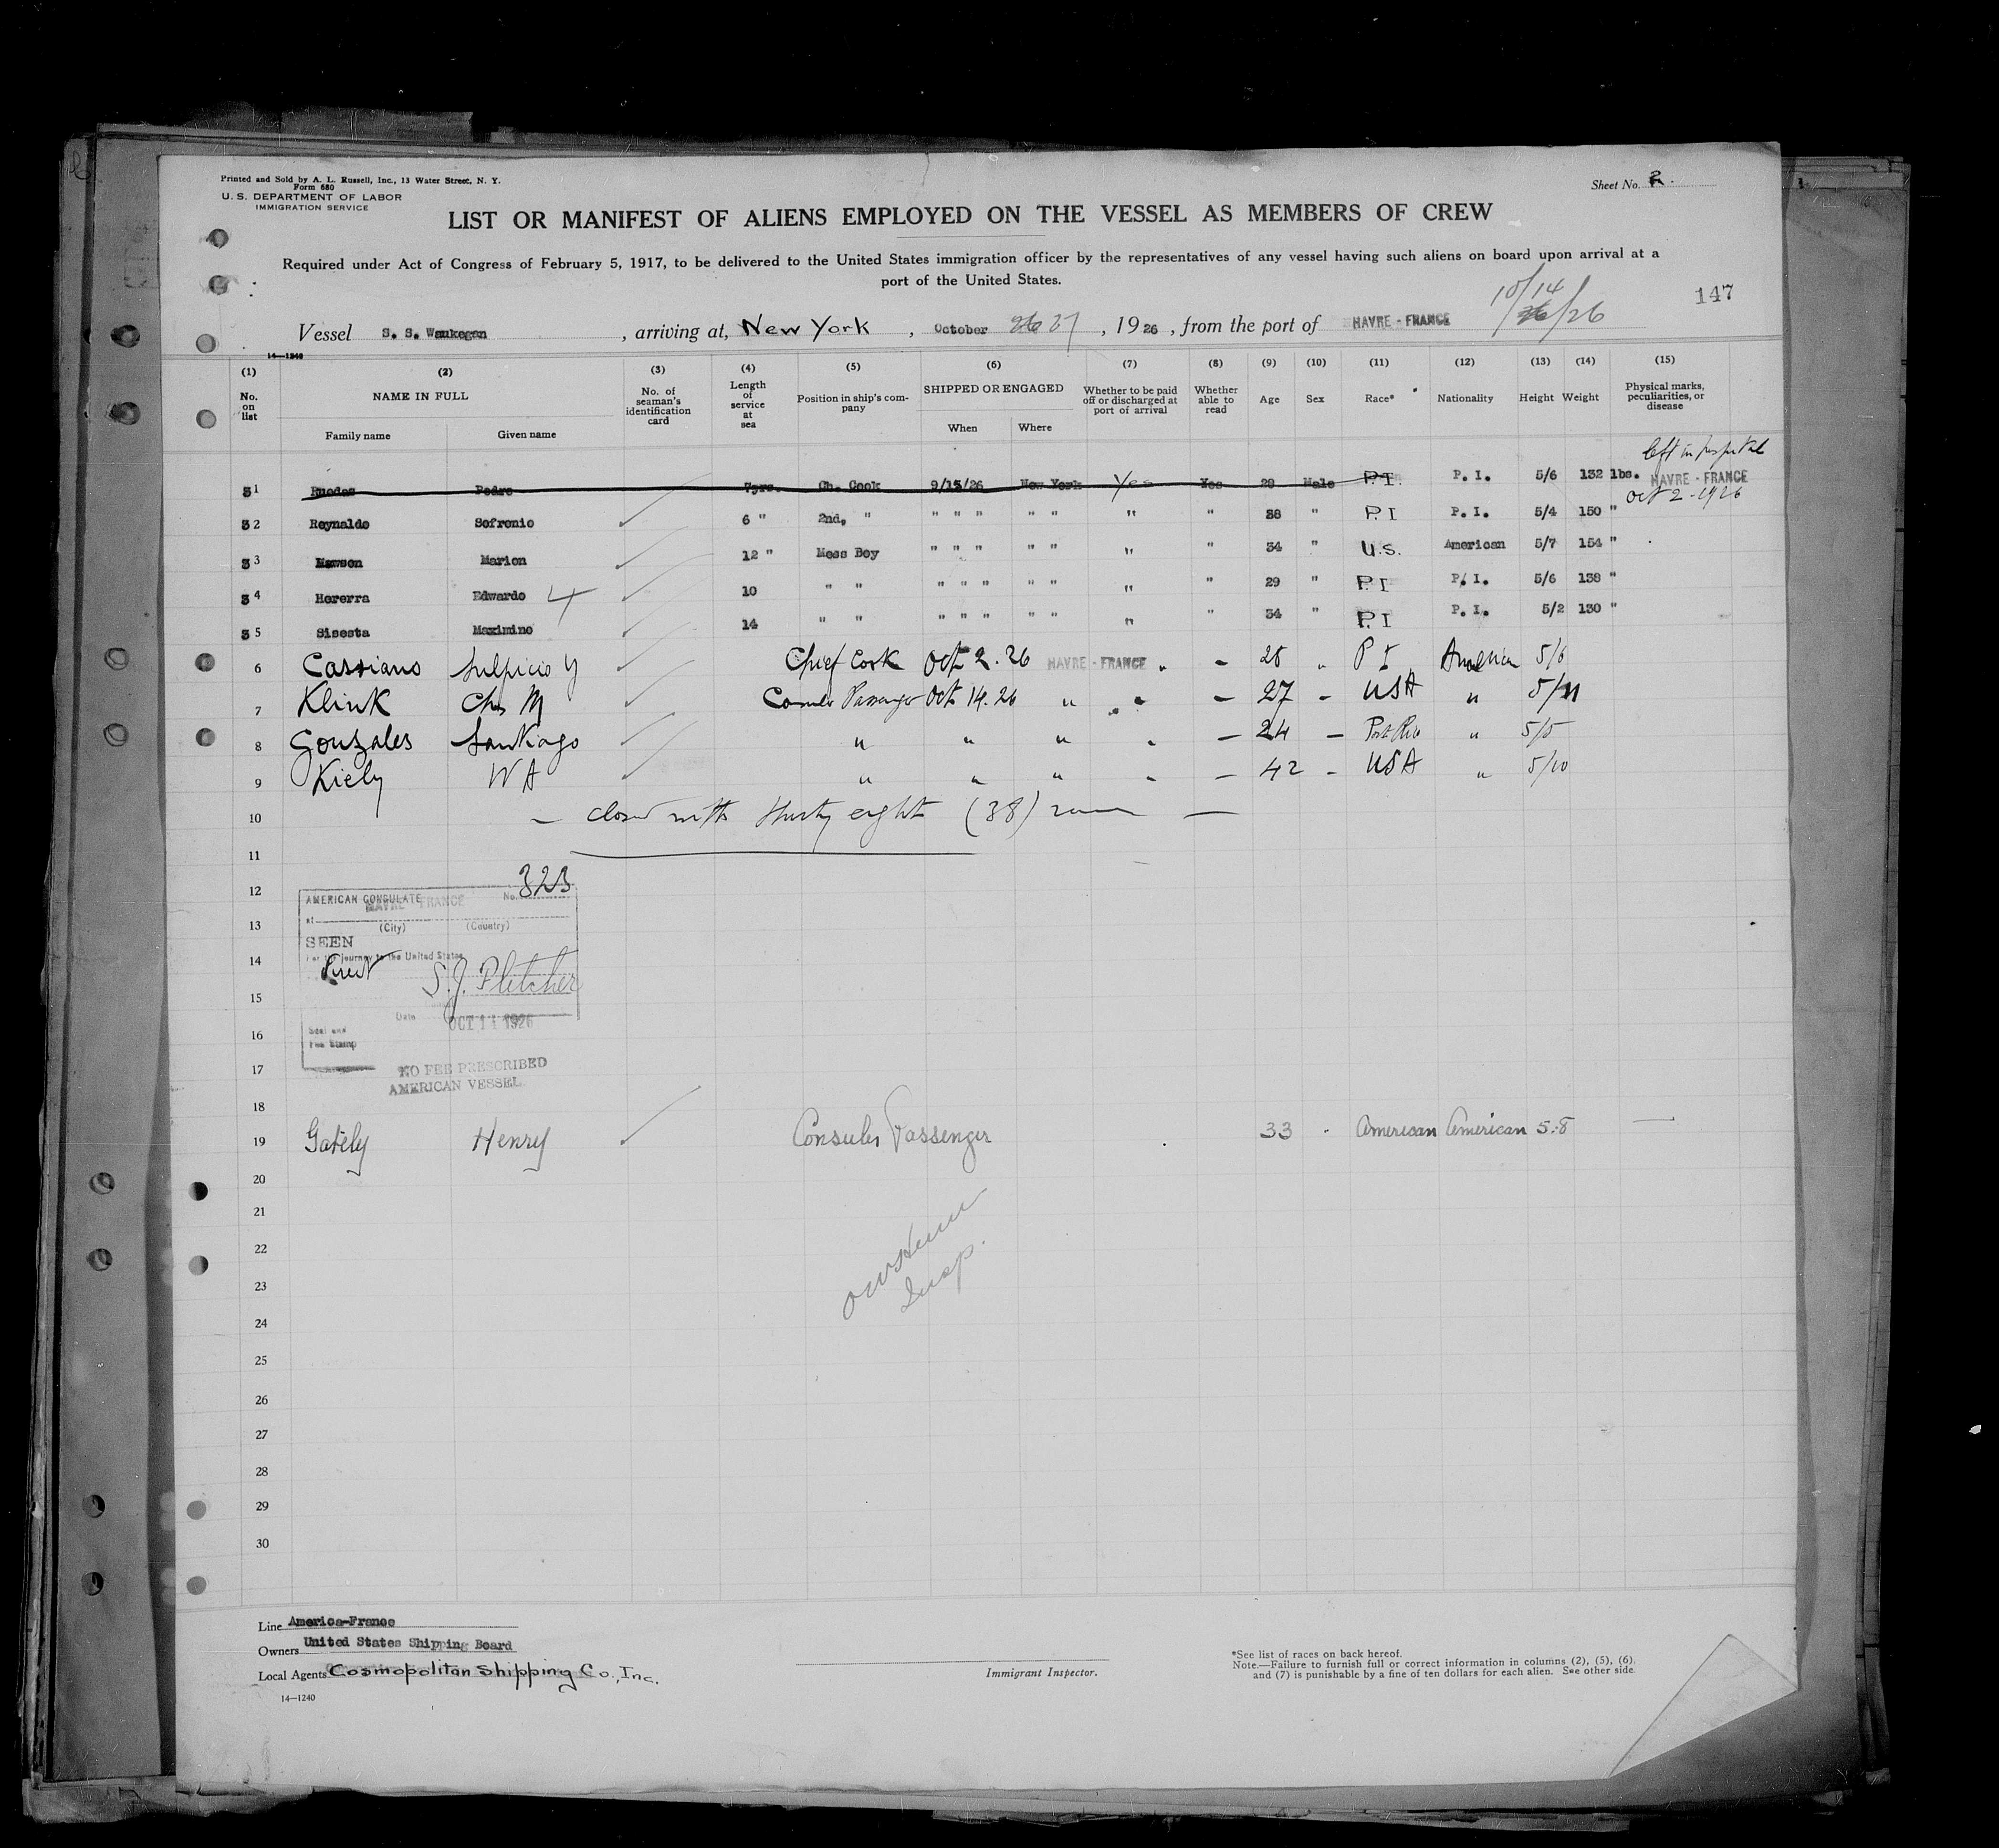 Printed and Sold by A. L. Russell, Inc., 13 Water Street, N. Y.
Form 680
U. S. DEPARTMENT OF LABOR
IMMIGRATION SERVICE
Sheet No. 2.
LIST OR MANIFEST OF ALIENS EMPLOYED ON THE VESSEL AS MEMBERS OF CREW
Required under Act of Congress of February 5, 1917, to be delivered to the United States immigration officer by the representatives of any vessel having such aliens on board upon arrival at a
port of the United States.
10/14
147
Vessel S. S. Waukegan, arriving at, New York, October 27, 1926, from the port of HAVRE - FRANCE 26/26
14—1240
(1) (2) (3) (4) (5) (6) (7) (8) (9) (10) (11) (12) (13) (14) (15)
No. on list NAME IN FULL Family name Given name No. of seaman's identification card Length of service at sea Position in ship's company SHIPPED OR ENGAGED When Where Whether to be paid off or discharged at port of arrival Whether able to read Age Sex Race* Nationality Height Weight Physical marks, peculiarities, or disease
left in hospital
31 Rhodes Pedro 7yrs. Ch. Cook 9/15/26 New York Yes Yes 29 Male P.I. P. I. 5/6 132 lbs. HAVRE - FRANCE
Oct 2 - 1926
32 Reynaldo Sofronio 6 " 2nd, " " " " " " " " 38 " P.I P. I. 5/4 150 "
33 Hawson Marion 12 " Mess Boy " " " " " " " 34 " U.S. American 5/7 154 "
34 Hererra Edwardo 4 10 " " " " " " " " " 29 " P.I P. I. 5/6 138 "
35 Sisesta Maximino 14 " " " " " " " " " 34 " P.I P. I. 5/2 130 "
6 Cassiano Sulpicio Y Chief Cook Oct 2. 26 HAVRE - FRANCE " - 28 " P I America 5/6
7 Klink Chs M Consular Passenger Oct 14. 26 " " - 27 - USA " 5/11
8 Gonzales Santiago " " " " - 24 - Port Rico " 5/5
9 Kiely W A " " " " - 42 - USA " 5/10
10 — Closed with thirty eight (38) —
11
12
13
14
15
16
17
18
AMERICAN CONSULATE No. 323
at HAVRE FRANCE
(City) (Country)
SEEN
For the journey to the United States
Direct S. J. Fletcher
Date OCT 14 1926
Seal and
Fee Stamp
NO FEE PRESCRIBED
AMERICAN VESSEL
19 Gately Henry Consuler Passenger 33 " American American 5.8 —
20
21
22
23
24
25
26
27
28
29
30
Insp.
Line America-France
Owners United States Shipping Board
Local Agents Cosmopolitan Shipping Co., Inc.
14—1240
Immigrant Inspector.
*See list of races on back hereof.
Note.—Failure to furnish full or correct information in columns (2), (5), (6),
and (7) is punishable by a fine of ten dollars for each alien. See other side.